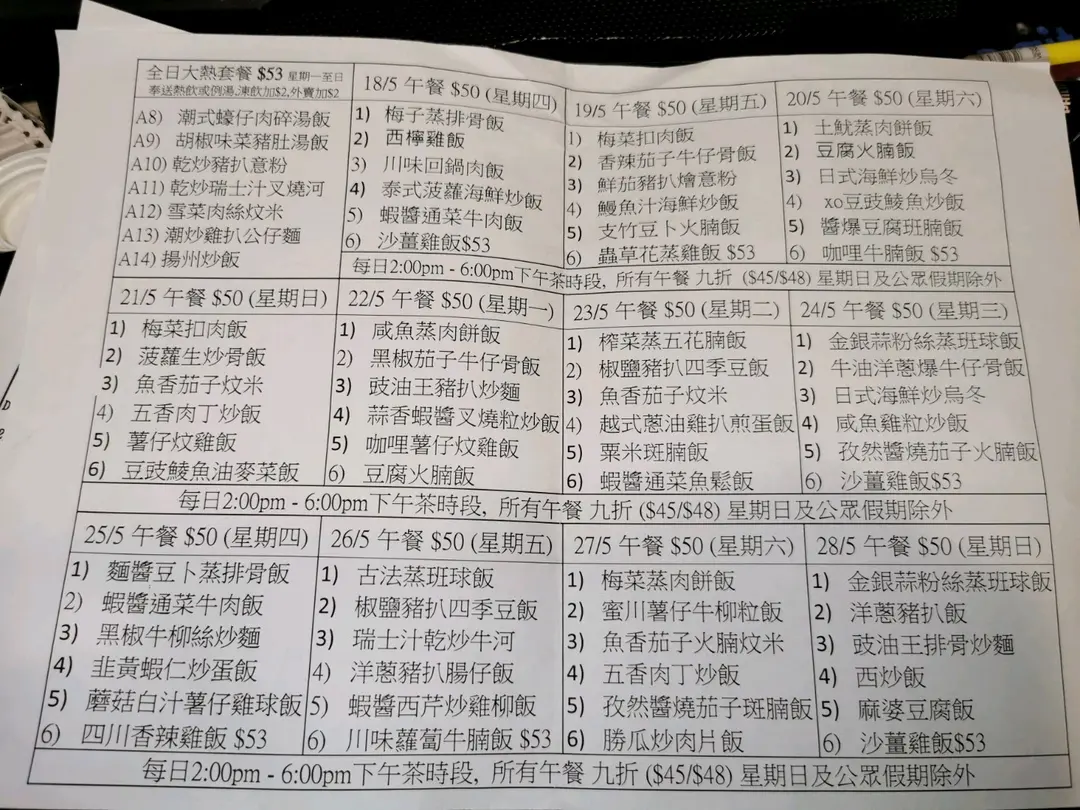 全日大熱套餐 $53 星期一至日
奉送熱飲或例湯,凍飲加$2,外賣加$2
A8) 潮式蠔仔肉碎湯飯
A9) 胡椒味菜豬肚湯飯
A10) 乾炒豬扒意粉
A11) 乾炒瑞士汁叉燒河
A12) 雪菜肉絲炆米
A13) 潮炒雞扒公仔麵
A14) 揚州炒飯
18/5 午餐 $50 (星期四)
1) 梅子蒸排骨飯
2) 西檸雞飯
3) 川味回鍋肉飯
4) 泰式菠蘿海鮮炒飯
5) 蝦醬通菜牛肉飯
6) 沙薑雞飯$53
19/5 午餐 $50 (星期五)
1) 梅菜扣肉飯
2) 香辣茄子牛仔骨飯
3) 鮮茄豬扒燴意粉
4) 鰻魚汁海鮮炒飯
5) 支竹豆卜火腩飯
6) 蟲草花蒸雞飯 $53
20/5 午餐 $50 (星期六)
1) 土魷蒸肉餅飯
2) 豆腐火腩飯
3) 日式海鮮炒烏冬
4) xo豆豉鯪魚炒飯
5) 醬爆豆腐班腩飯
6) 咖哩牛腩飯 $53
每日2:00pm - 6:00pm下午茶時段, 所有午餐 九折 ($45/$48) 星期日及公眾假期除外
21/5 午餐 $50 (星期日)
1) 梅菜扣肉飯
2) 菠蘿生炒骨飯
3) 魚香茄子炆米
4) 五香肉丁炒飯
5) 薯仔炆雞飯
6) 豆豉鯪魚油麥菜飯
22/5 午餐 $50 (星期一)
1) 咸魚蒸肉餅飯
2) 黑椒茄子牛仔骨飯
3) 豉油王豬扒炒麵
4) 蒜香蝦醬叉燒粒炒飯
5) 咖哩薯仔炆雞飯
6) 豆腐火腩飯
23/5 午餐 $50 (星期二)
1) 榨菜蒸五花腩飯
2) 椒鹽豬扒四季豆飯
3) 魚香茄子炆米
4) 越式蔥油雞扒煎蛋飯
5) 粟米斑腩飯
6) 蝦醬通菜魚鬆飯
24/5 午餐 $50 (星期三)
1) 金銀蒜粉絲蒸班球飯
2) 牛油洋蔥爆牛仔骨飯
3) 日式海鮮炒烏冬
4) 咸魚雞粒炒飯
5) 孜然醬燒茄子火腩飯
6) 沙薑雞飯$53
每日2:00pm - 6:00pm下午茶時段, 所有午餐 九折 ($45/$48) 星期日及公眾假期除外
25/5 午餐 $50 (星期四)
1) 麵醬豆卜蒸排骨飯
2) 蝦醬通菜牛肉飯
3) 黑椒牛柳絲炒麵
4) 韭黃蝦仁炒蛋飯
5) 蘑菇白汁薯仔雞球飯
6) 四川香辣雞飯 $53
26/5 午餐 $50 (星期五)
1) 古法蒸班球飯
2) 椒鹽豬扒四季豆飯
3) 瑞士汁乾炒牛河
4) 洋蔥豬扒腸仔飯
5) 蝦醬西芹炒雞柳飯
6) 川味蘿蔔牛腩飯 $53
27/5 午餐 $50 (星期六)
1) 梅菜蒸肉餅飯
2) 蜜川薯仔牛柳粒飯
3) 魚香茄子火腩炆米
4) 五香肉丁炒飯
5) 孜然醬燒茄子斑腩飯
6) 勝瓜炒肉片飯
28/5 午餐 $50 (星期日)
1) 金銀蒜粉絲蒸班球飯
2) 洋蔥豬扒飯
3) 豉油王排骨炒麵
4) 西炒飯
5) 麻婆豆腐飯
6) 沙薑雞飯$53
每日2:00pm - 6:00pm下午茶時段, 所有午餐 九折 ($45/$48) 星期日及公眾假期除外